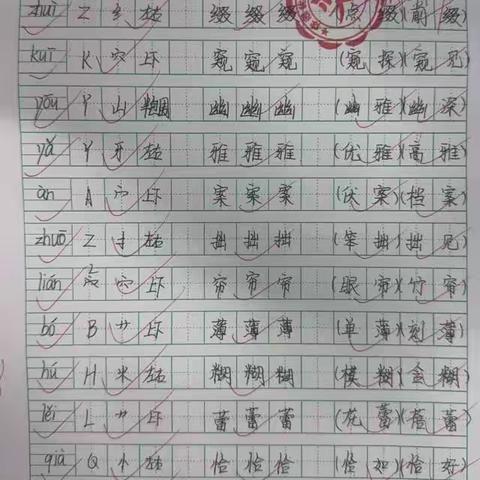 zhuì Z 纟 左右 缀 缀 缀 (点 缀)(前 缀)
kuī K 穴 上下 窥 窥 窥 (窥 探)(窥 见)
yōu Y 山 半包围 幽 幽 幽 (幽 雅)(幽 深)
yǎ Y 牙 左右 雅 雅 雅 (优 雅)(高 雅)
àn A 宀 上下 案 案 案 (伏 案)(档 案)
zhuō Z 扌 左右 拙 拙 拙 (笨 拙)(拙 见)
lián L 穴 上下 帘 帘 帘 (眼 帘)(竹 帘)
bó B 艹 上下 薄 薄 薄 (单 薄)(刻 薄)
hú H 米 左右 糊 糊 糊 (模 糊)(含 糊)
lěi L 艹 上下 蕾 蕾 蕾 (花 蕾)(蓓 蕾)
qià Q 忄 左右 恰 恰 恰 (恰 如)(恰 好)